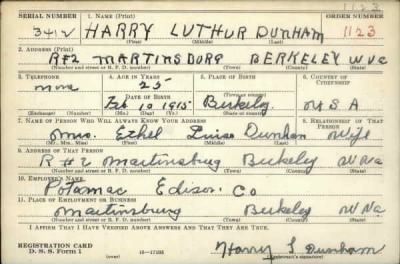 1123
SERIAL NUMBER 1. NAME (Print) ORDER NUMBER
3412 HARRY LUTHUR DUNHAM 1123
(First) (Middle) (Last)
2. ADDRESS (Print)
R#2 MARTINSBORG BERKELEY W VA
(Number and street or R. F. D. number) (Town) (County) (State)
3. TELEPHONE 4. AGE IN YEARS 5. PLACE OF BIRTH 6. COUNTRY OF CITIZENSHIP
none 25
DATE OF BIRTH Berkeley U S A
Feb 10 1915
(Exchange) (Number) (Mo.) (Day) (Yr.) (State or country)
7. NAME OF PERSON WHO WILL ALWAYS KNOW YOUR ADDRESS 8. RELATIONSHIP OF THAT PERSON
Mrs. Ethel Luise Dunham Wife
(Mr., Mrs., Miss) (First) (Middle) (Last)
9. ADDRESS OF THAT PERSON
R#2 Martinsburg Berkeley W Va
(Number and street or R. F. D. number) (Town) (County) (State)
10. EMPLOYER'S NAME
Potamac Edison Co
11. PLACE OF EMPLOYMENT OR BUSINESS
Martinsburg Berkeley W Va
(Number and street or R. F. D. number) (Town) (County) (State)
I AFFIRM THAT I HAVE VERIFIED ABOVE ANSWERS AND THAT THEY ARE TRUE.
REGISTRATION CARD
D. S. S. Form 1 16—17105 Harry L Dunham
(Registrant's signature)